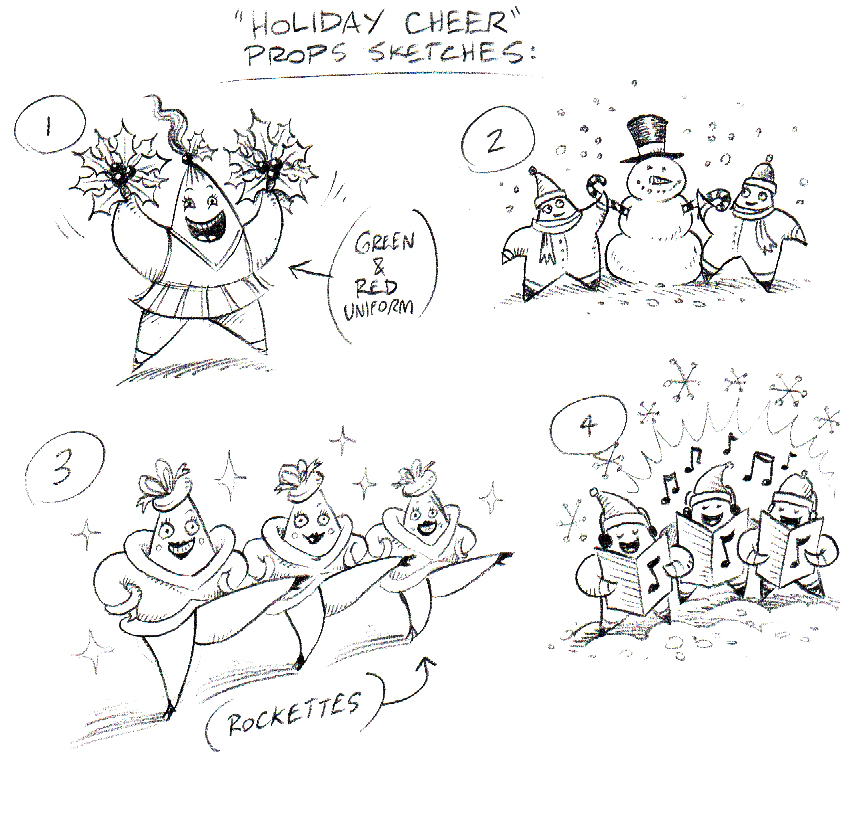 "HOLIDAY CHEER"
PROPS SKETCHES:
1
2
GREEN
&
RED
UNIFORM
3
4
ROCKETTES